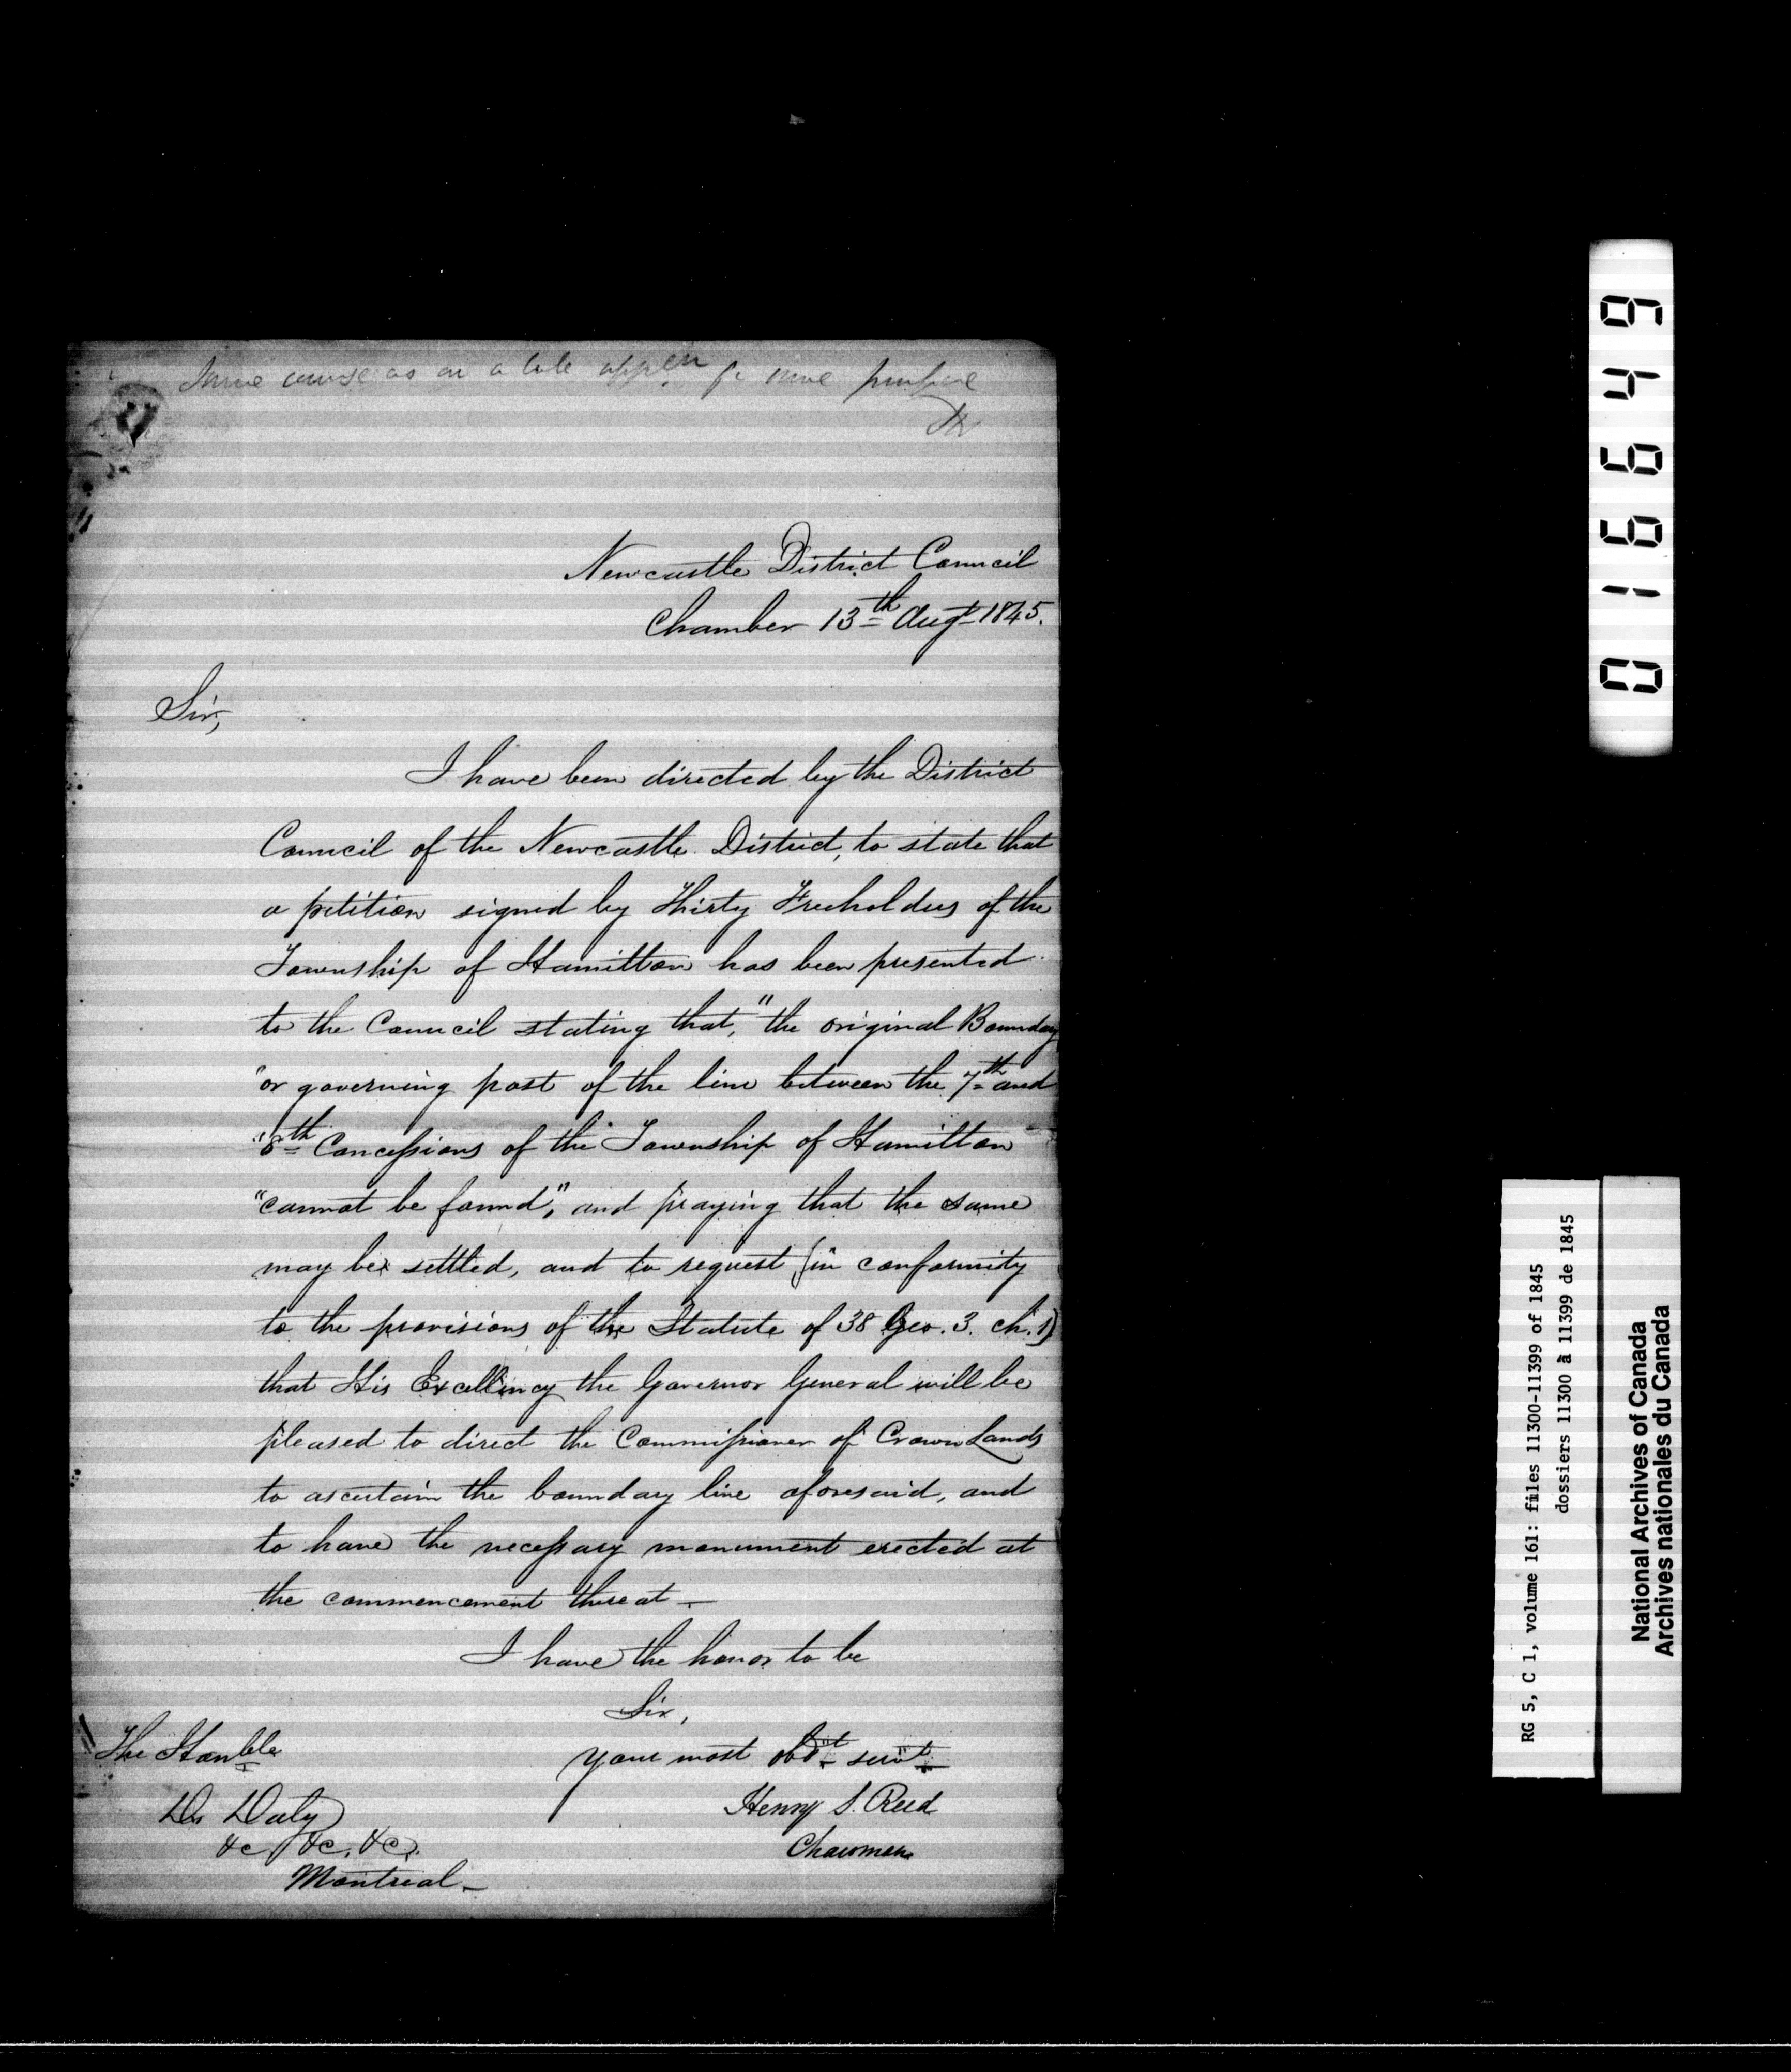 Same course as on a late appln for same purpose
Newcastle District Council
Chamber 13th Augt 1845.
Sir,
I have been directed by the District
Council of the Newcastle District, to state that
a petition signed by Thirty Freeholders of the
Township of Hamilton has been presented
to the Council stating that, "the original Boundary
"or governing post of the line between the 7th and
"8th Concessions of the Township of Hamilton
"cannot be found", and praying that the same
may be settled, and to request (in conformity
to the provisions of the Statute of 38 Geo. 3. ch. 1)
that His Excellency the Governor General will be
pleased to direct the Commissioner of Crown Lands
to ascertain the boundary line aforesaid, and
to have the necessary monument erected at
the commencement thereat –
I have the honor to be
Sir,
your most obdt servt
Henry S. Reed
Chairman
The Honble
D. Daly
&c &c. &c.
Montreal –
016649
RG 5, C 1, volume 161: files 11300-11399 of 1845
dossiers 11300 à 11399 de 1845
National Archives of Canada
Archives nationales du Canada